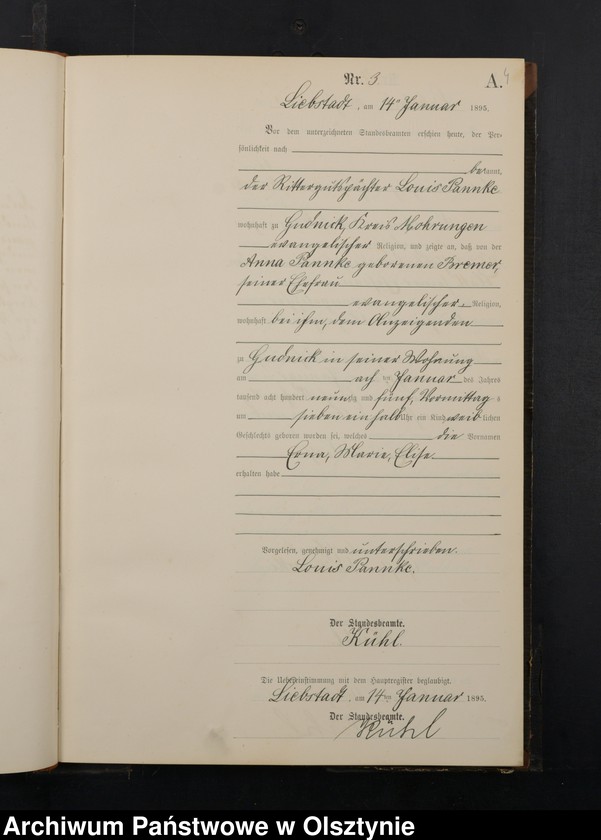 Nr. 3.
A.
4
Liebstadt, am 14ten Januar 1895.
Vor dem unterzeichneten Standesbeamten erschien heute, der Per-
sönlichkeit nach
bekannt,
der Rittergutspächter Louis Pannke
wohnhaft zu Gudnick, Kreis Mohrungen
evangelischer Religion, und zeigte an, daß von der
Anna Pannke geborenen Bremer,
seiner Ehefrau
evangelischer Religion,
wohnhaft bei ihm, dem Anzeigenden
zu Gudnick in seiner Wohnung
am ten Januar des Jahres
tausend acht hundert neunzig und fünf, Vormittags
um sieben ein halb Uhr ein Kind weiblichen
Geschlechts geboren worden sei, welches die Vornamen
Erna, Marie, Elise
erhalten habe
Vorgelesen, genehmigt und unterschrieben.
Louis Pannke.
Der Standesbeamte.
Kühl.
Die Uebereinstimmung mit dem Hauptregister beglaubigt.
Liebstadt, am 14ten Januar 1895.
Der Standesbeamte.
Kühl
Archiwum Państwowe w Olsztynie